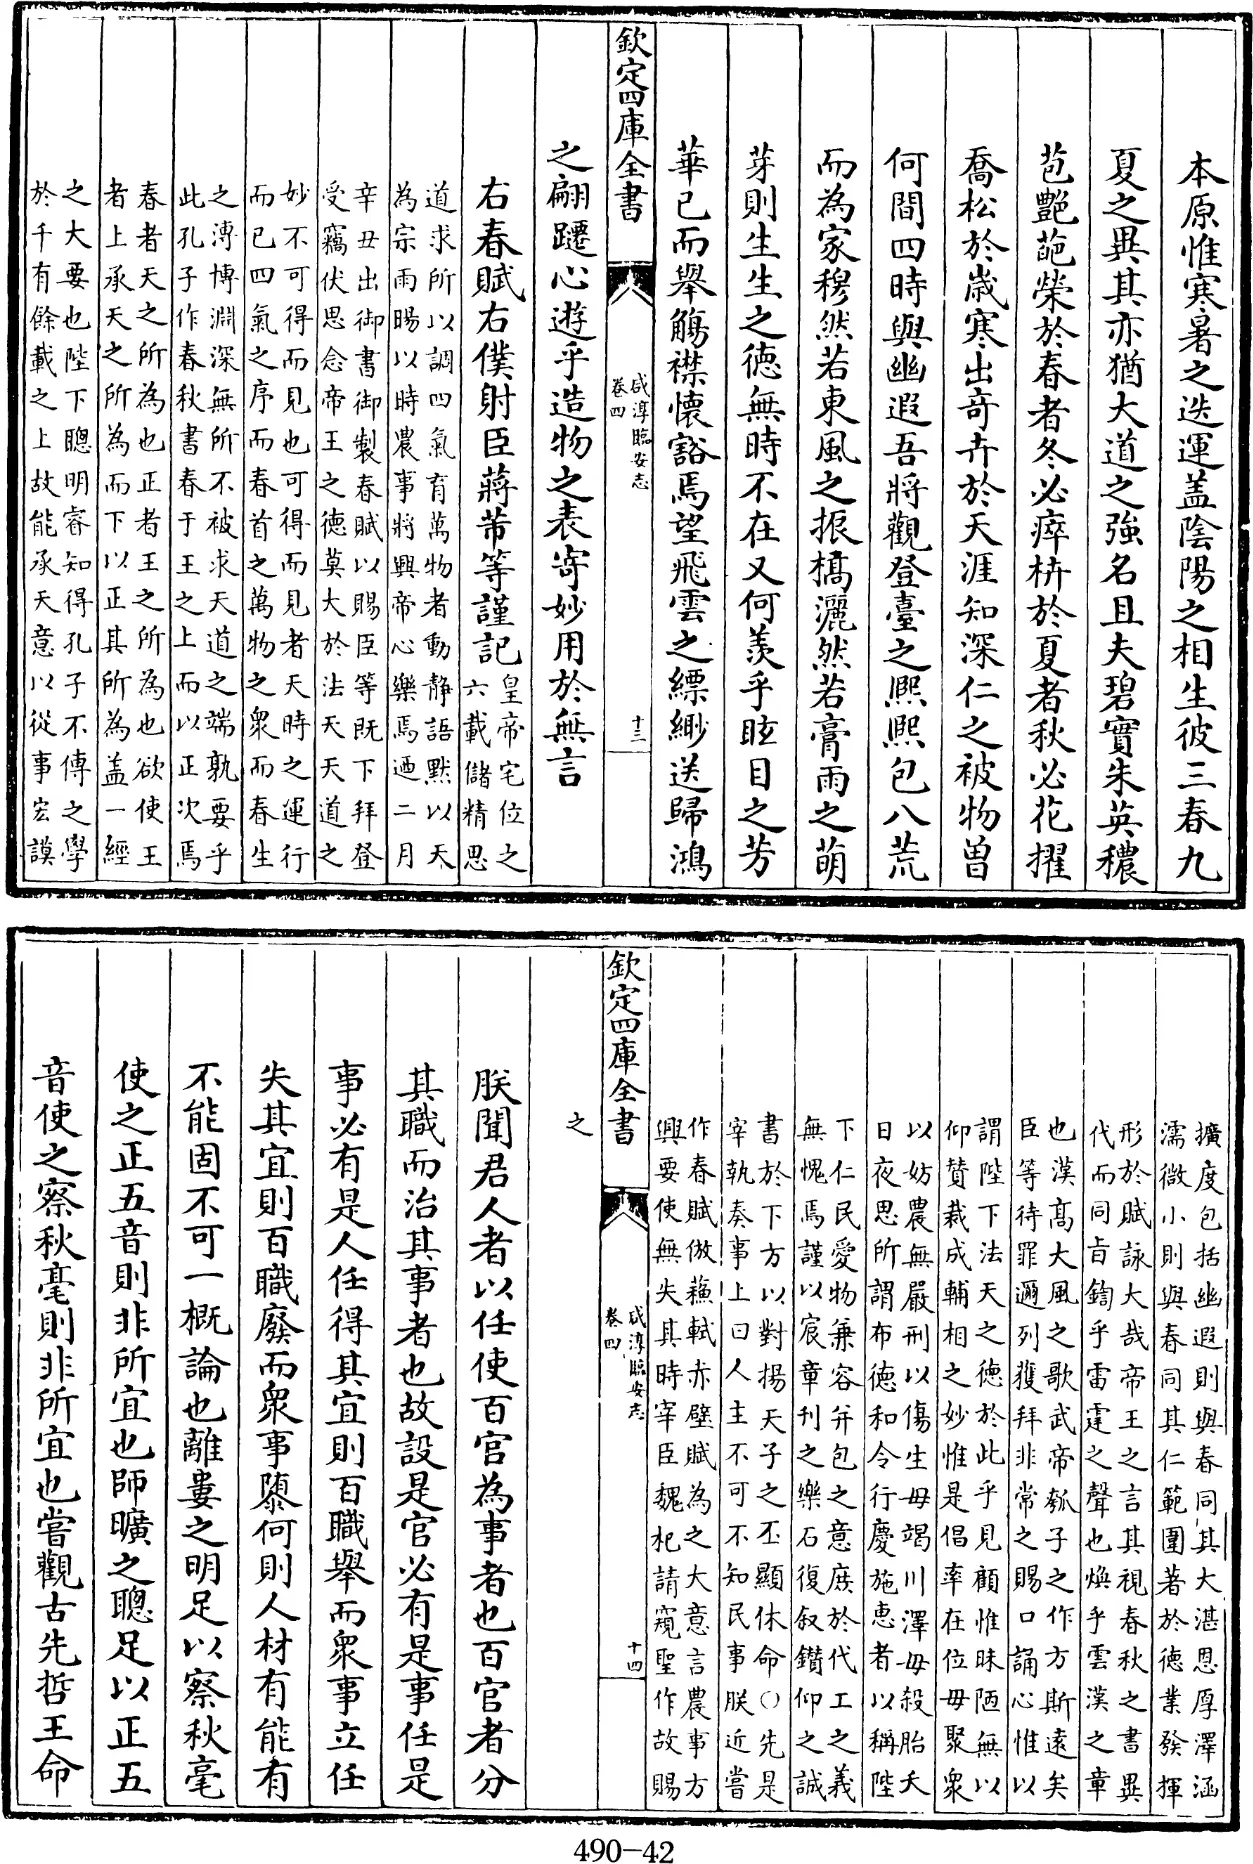 本原惟寒暑之迭運蓋陰陽之相生彼三春九
夏之異其亦猶大道之強名且夫碧實朱英穠
苞艷葩榮於春者冬必瘁枿於夏者秋必花擢
喬松於歲寒出奇卉於天涯知深仁之被物曽
何間四時與幽遐吾將觀登臺之熙熙包八荒
而為家穆然若東風之振槁灑然若膏雨之萌
芽則生生之德無時不在又何羨乎眩目之芳
華已而舉觴襟懷豁焉望飛雲之縹緲送歸鴻
欽定四庫全書
咸淳臨安志
卷四
十三
之翩躚心遊乎造物之表寄妙用於無言
右春賦右僕射臣蔣芾等謹記
皇帝宅位之
六載儲精思
道求所以調四氣育萬物者動靜語默以天
為宗雨暘以時農事將興帝心樂焉迺二月
辛丑出御書御製春賦以賜臣等既下拜登
受竊伏思念帝王之德莫大於法天天道之
妙不可得而見也可得而見者天時之運行
而已四氣之序而春首之萬物之衆而春生
之溥博淵深無所不被求天道之端孰要乎
此孔子作春秋書春于王之上而以正次焉
春者天之所為也正者王之所為也欲使王
者上承天之所為而下以正其所為盖一經
之大要也陛下聰明睿知得孔子不傳之學
於千有餘載之上故能承天意以從事宏謨
擴度包括幽遐則與春同其大湛恩厚澤涵
濡微小則與春同其仁範圍著於德業發揮
形於賦詠大哉帝王之言其視春秋之書異
代而同旨鍧乎雷霆之聲也煥乎雲漢之章
也漢髙大風之歌武帝瓠子之作方斯遠矣
臣等待罪邇列獲拜非常之賜口誦心惟以
謂陛下法天之德於此乎見顧惟昧陋無以
仰賛裁成輔相之妙惟是倡率在位毋聚衆
以妨農無嚴刑以傷生毋竭川澤毋殺胎夭
日夜思所謂布德和令行慶施惠者以稱陛
下仁民愛物兼容并包之意庶於代工之義
無愧焉謹以宸章刊之樂石復叙鑽仰之誠
書於下方以對揚天子之丕顯休命〇先是
宰執奏事上曰人主不可不知民事朕近嘗
作春賦倣蘓軾赤壁賦為之大意言農事方
興要使無失其時宰臣魏杞請窺聖作故賜
欽定四庫全書
咸淳臨安志
卷四
十四
之
朕聞君人者以任使百官為事者也百官者分
其職而治其事者也故設是官必有是事任是
事必有是人任得其宜則百職舉而衆事立任
失其宜則百職廢而衆事隳何則人材有能有
不能固不可一概論也離婁之明足以察秋毫
使之正五音則非所宜也師曠之聰足以正五
音使之察秋毫則非所宜也嘗觀古先哲王命
490-42